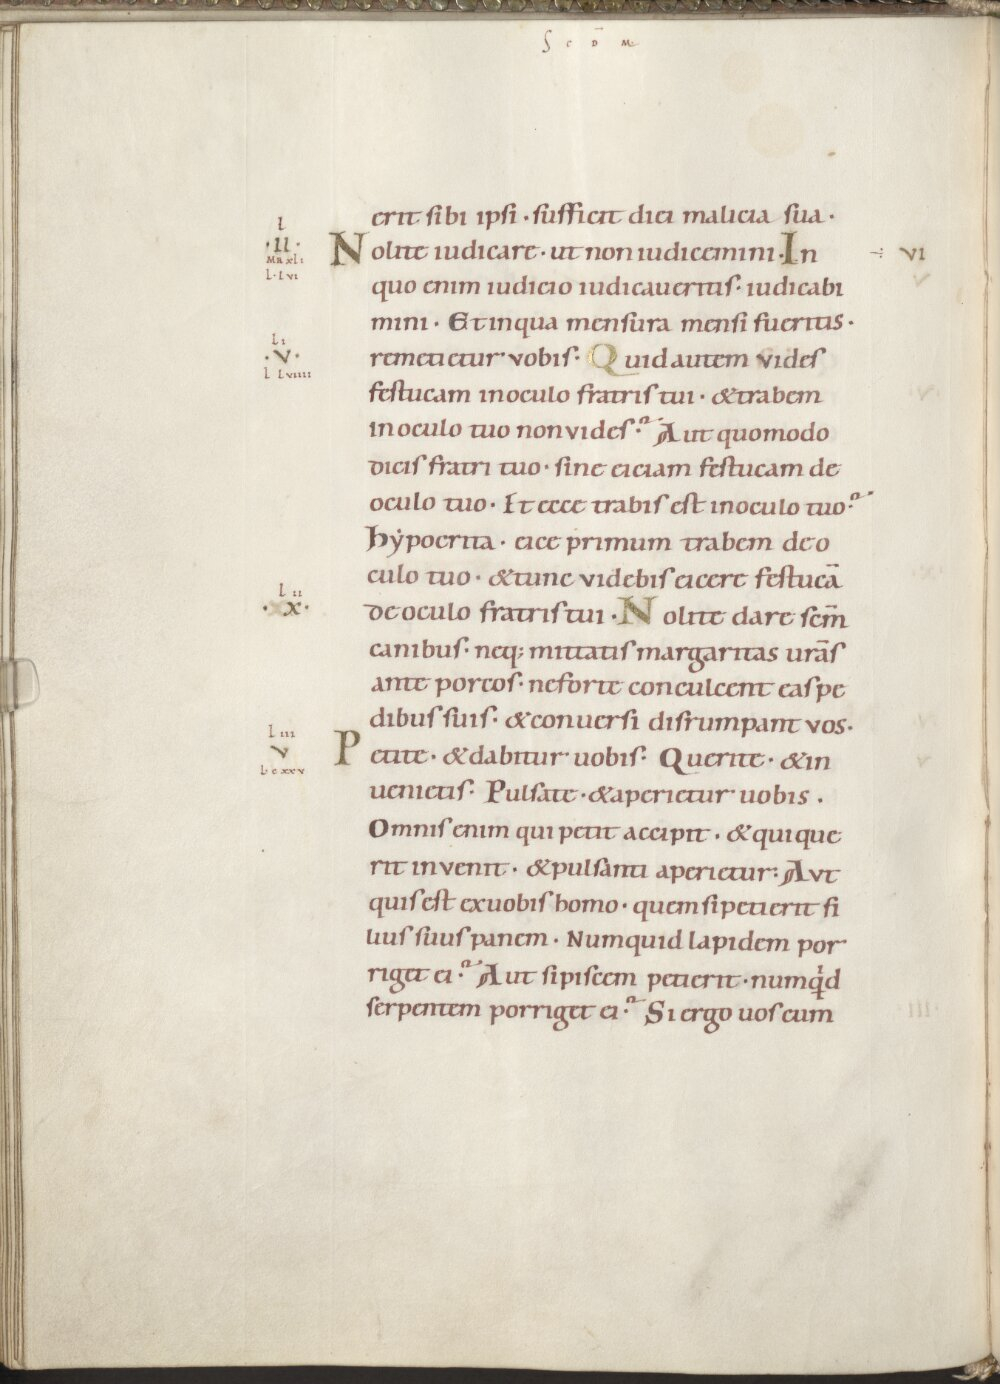 S C D̄ M
erit sibi ipsi · sufficit diei malicia sua ·
l
·II·
MR xli
L·Lvi
Nolite iudicare · ut non iudicemini · In
VI
quo enim iudicio iudicaueritis · iudicabi
mini · Et inqua mensura mensi fueritis ·
Li
·V·
L Lviiii
remetietur vobis · Quid autem vides
festucam inoculo fratris tui · &trabem
inoculo tuo non vides? Aut quomodo
dicis fratri tuo · sine eiciam festucam de
oculo tuo · Et ecce trabis est inoculo tuo?
hẏpocrita · eice primum trabem deo
culo tuo · &tunc videbis eicere festucā
Lii
·X·
de oculo fratris tui · Nolite dare scm̄
canibus · neq; mittatis margaritas urās
ante porcos · neforte conculcent eas pe
dibus suis · &conuersi disrumpant vos ·
Liii
V
L cxxv
Petite · &dabitur uobis · Querite · &in
uenietis · Pulsate · &aperietur uobis ·
Omnis enim qui petit accipit · &qui que
rit invenit · &pulsanti aperietur: Avt
quis est exuobis homo · quem si petierit fi
lius suus panem · Numquid lapidem por
riget ei? Aut si piscem petierit · numqͥd
serpentem porriget ei? Si ergo uos cum